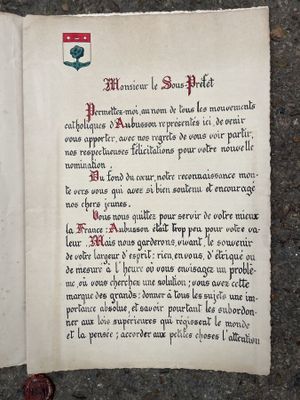 Monsieur le Sous-Préfet
Permettez-moi, au nom de tous les mouvements
catholiques d'Aubusson représentés ici, de venir
vous apporter, avec nos regrets de vous voir partir,
nos respectueuses félicitations pour votre nouvelle
nomination.
Du fond du cœur, notre reconnaissance mon-
te vers vous qui avez si bien soutenu et encouragé
nos chers jeunes.
Vous nous quittez pour servir de votre mieux
la France : Aubusson était trop peu pour votre va-
leur. Mais nous garderons, vivant, le souvenir
de votre largeur d'esprit : rien, en vous, d'étriqué ou
de mesuré à l'heure où vous envisagez un problè-
me, où vous cherchez une solution ; vous avez cette
marque des grands : donner à tous les sujets une im-
portance absolue, et savoir pourtant les subordon-
ner aux lois supérieures qui régissent le monde
et la pensée ; accorder aux petites choses l'attention